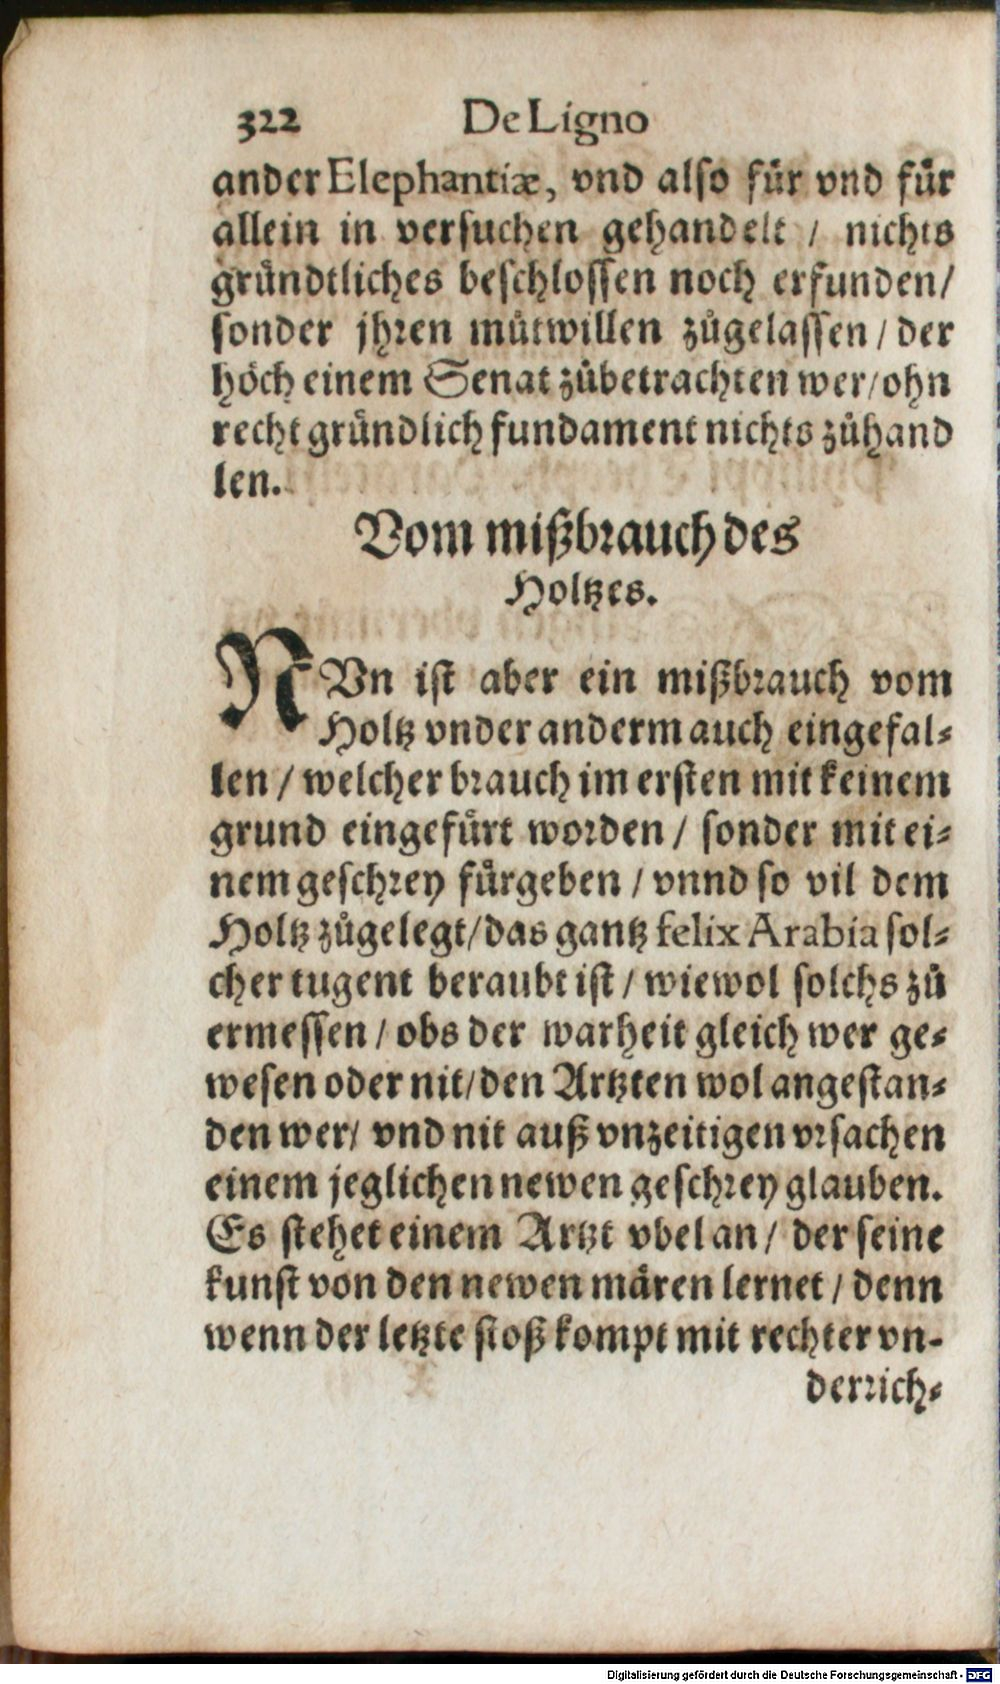 322 De Ligno
ander Elephantiæ, vnd also fuͤr vnd fuͤr
allein in versuchen gehandelt / nichts
gruͤndtliches beschlossen noch erfunden /
sonder jhren muͤtwillen zuͦgelassen / der
hoͤch einem Senat zuͦbetrachten wer / ohn
recht gruͤndlich fundament nichts zuͦhand
len.
Vom mißbrauch des
Holtzes.
NVn ist aber ein mißbrauch vom
Holtz vnder anderm auch eingefal-
len / welcher brauch im ersten mit keinem
grund eingefuͤrt worden / sonder mit ei-
nem geschrey fuͤrgeben / vnnd so vil dem
Holtz zuͦgelegt / das gantz felix Arabia sol-
cher tugent beraubt ist / wiewol solchs zuͦ
ermessen / obs der warheit gleich wer ge-
wesen oder nit / den Artzten wol angestan-
den wer / vnd nit auß vnzeitigen vrsachen
einem jeglichen newen geschrey glauben.
Es stehet einem Artzt vbel an / der seine
kunst von den newen maͤren lernet / denn
wenn der letzte stoß kompt mit rechter vn-
derrich-
Digitalisierung gefördert durch die Deutsche Forschungsgemeinschaft - DFG